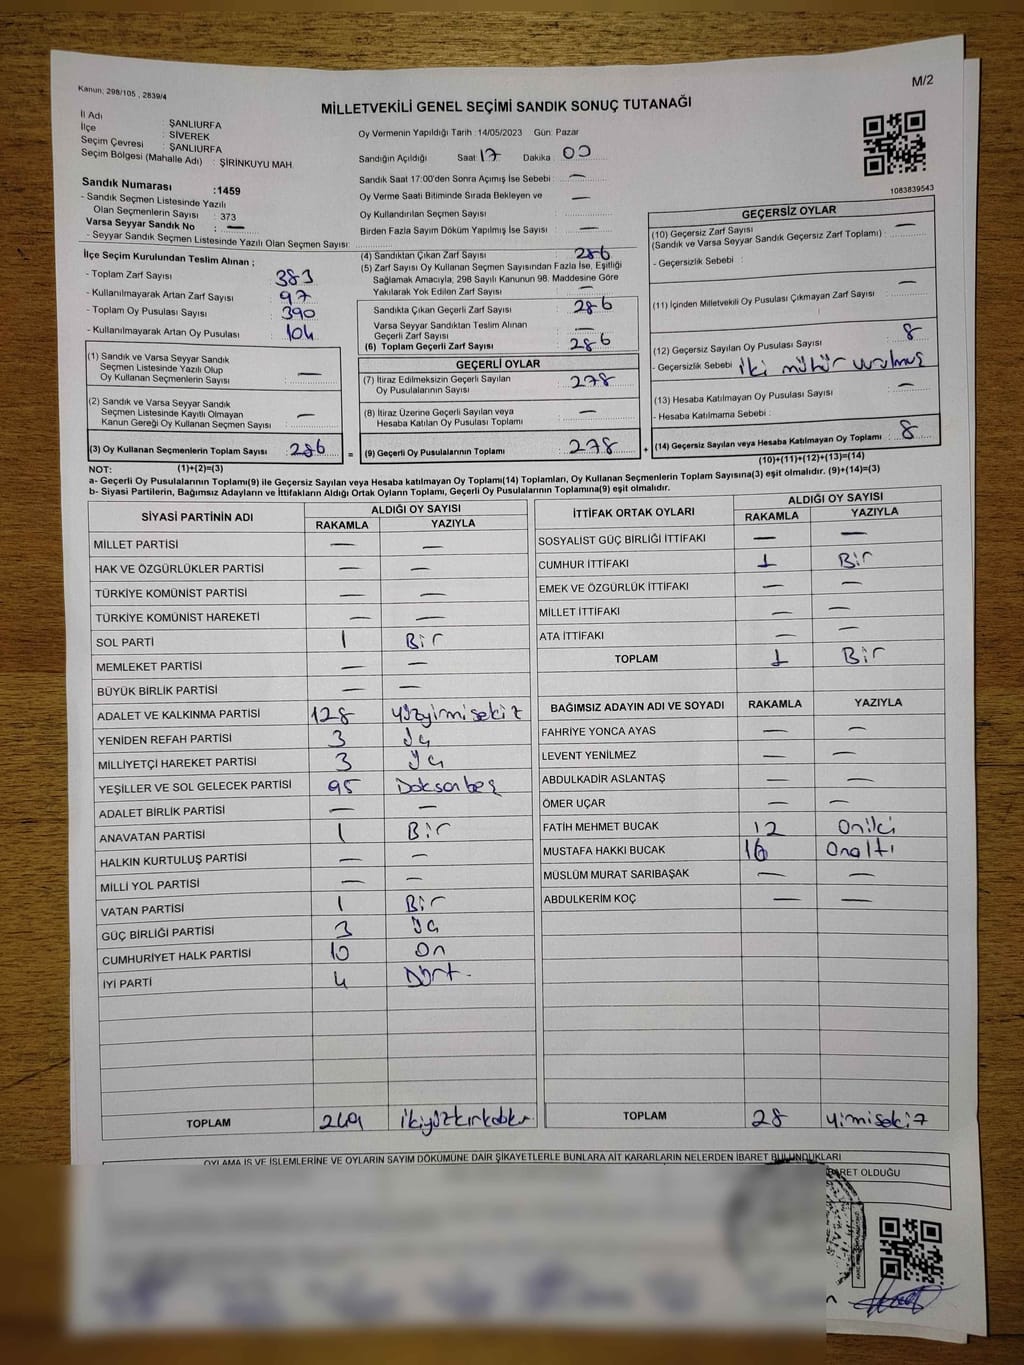 Kanun; 298/105 , 2839/4
M/2
MİLLETVEKİLİ GENEL SEÇİMİ SANDIK SONUÇ TUTANAĞI
İl Adı : ŞANLIURFA
İlçe : SİVEREK
Seçim Çevresi : ŞANLIURFA
Seçim Bölgesi (Mahalle Adı) : ŞİRİNKUYU MAH.
Oy Vermenin Yapıldığı Tarih : 14/05/2023 Gün: Pazar
Sandığın Açıldığı Saat 17 Dakika : 00
Sandık Saat 17:00'den Sonra Açımış İse Sebebi : —
Oy Verme Saati Bitiminde Sırada Bekleyen ve
Oy Kullandırılan Seçmen Sayısı : —
Birden Fazla Sayım Döküm Yapılmış İse Sayısı : —
1083839543
Sandık Numarası : 1459
- Sandık Seçmen Listesinde Yazılı
Olan Seçmenlerin Sayısı : 373
Varsa Seyyar Sandık No : —
- Seyyar Sandık Seçmen Listesinde Yazılı Olan Seçmen Sayısı:
İlçe Seçim Kurulundan Teslim Alınan ;
- Toplam Zarf Sayısı : 383
- Kullanılmayarak Artan Zarf Sayısı : 97
- Toplam Oy Pusulası Sayısı : 390
- Kullanılmayarak Artan Oy Pusulası : 104
(1) Sandık ve Varsa Seyyar Sandık
Seçmen Listesinde Yazılı Olup
Oy Kullanan Seçmenlerin Sayısı : —
(2) Sandık ve Varsa Seyyar Sandık
Seçmen Listesinde Kayıtlı Olmayan
Kanun Gereği Oy Kullanan Seçmen Sayısı : —
(3) Oy Kullanan Seçmenlerin Toplam Sayısı : 286
(4) Sandıktan Çıkan Zarf Sayısı : 286
(5) Zarf Sayısı Oy Kullanan Seçmen Sayısından Fazla İse, Eşitliği
Sağlamak Amacıyla, 298 Sayılı Kanunun 98. Maddesine Göre
Yakılarak Yok Edilen Zarf Sayısı : —
Sandıkta Çıkan Geçerli Zarf Sayısı : 286
Varsa Seyyar Sandıktan Teslim Alınan
Geçerli Zarf Sayısı : —
(6) Toplam Geçerli Zarf Sayısı : 286
GEÇERLİ OYLAR
(7) İtiraz Edilmeksizin Geçerli Sayılan
Oy Pusulalarının Sayısı : 278
(8) İtiraz Üzerine Geçerli Sayılan veya
Hesaba Katılan Oy Pusulası Toplamı : —
= (9) Geçerli Oy Pusulalarının Toplamı : 278
GEÇERSİZ OYLAR
(10) Geçersiz Zarf Sayısı
(Sandık ve Varsa Seyyar Sandık Geçersiz Zarf Toplamı) : —
- Geçersizlik Sebebi :
(11) İçinden Milletvekili Oy Pusulası Çıkmayan Zarf Sayısı : —
(12) Geçersiz Sayılan Oy Pusulası Sayısı : 8
- Geçersizlik Sebebi : İki mühür vurulmuş
(13) Hesaba Katılmayan Oy Pusulası Sayısı : —
- Hesaba Katılmama Sebebi :
+ (14) Geçersiz Sayılan veya Hesaba Katılmayan Oy Toplamı : 8
NOT: (1)+(2)=(3)
(10)+(11)+(12)+(13)=(14)
a- Geçerli Oy Pusulalarının Toplamı(9) ile Geçersiz Sayılan veya Hesaba katılmayan Oy Toplamı(14) Toplamları, Oy Kullanan Seçmenlerin Toplam Sayısına(3) eşit olmalıdır. (9)+(14)=(3)
b- Siyasi Partilerin, Bağımsız Adayların ve İttifakların Aldığı Ortak Oyların Toplamı, Geçerli Oy Pusulalarının Toplamına(9) eşit olmalıdır.
SİYASİ PARTİNİN ADI ALDIĞI OY SAYISI
RAKAMLA YAZIYLA
MİLLET PARTİSİ — —
HAK VE ÖZGÜRLÜKLER PARTİSİ — —
TÜRKİYE KOMÜNİST PARTİSİ — —
TÜRKİYE KOMÜNİST HAREKETİ — —
SOL PARTİ 1 Bir
MEMLEKET PARTİSİ — —
BÜYÜK BİRLİK PARTİSİ — —
ADALET VE KALKINMA PARTİSİ 128 yüzyirmisekiz
YENİDEN REFAH PARTİSİ 3 üç
MİLLİYETÇİ HAREKET PARTİSİ 3 üç
YEŞİLLER VE SOL GELECEK PARTİSİ 95 Doksanbeş
ADALET BİRLİK PARTİSİ — —
ANAVATAN PARTİSİ 1 Bir
HALKIN KURTULUŞ PARTİSİ — —
MİLLİ YOL PARTİSİ — —
VATAN PARTİSİ 1 Bir
GÜÇ BİRLİĞİ PARTİSİ 3 üç
CUMHURİYET HALK PARTİSİ 10 On
İYİ PARTİ 4 Dört
TOPLAM 249 ikiyüzkırkdokuz
İTTİFAK ORTAK OYLARI ALDIĞI OY SAYISI
RAKAMLA YAZIYLA
SOSYALİST GÜÇ BİRLİĞİ İTTİFAKI — —
CUMHUR İTTİFAKI 1 Bir
EMEK VE ÖZGÜRLÜK İTTİFAKI — —
MİLLET İTTİFAKI — —
ATA İTTİFAKI — —
TOPLAM 1 Bir
BAĞIMSIZ ADAYIN ADI VE SOYADI RAKAMLA YAZIYLA
FAHRİYE YONCA AYAS — —
LEVENT YENİLMEZ — —
ABDULKADİR ASLANTAŞ — —
ÖMER UÇAR — —
FATİH MEHMET BUCAK 12 Oniki
MUSTAFA HAKKI BUCAK 16 Onaltı
MÜSLÜM MURAT SARIBAŞAK — —
ABDULKERİM KOÇ — —
TOPLAM 28 yirmisekiz
OYLAMA İŞ VE İŞLEMLERİNE VE OYLARIN SAYIM DÖKÜMÜNE DAİR ŞİKAYETLERLE BUNLARA AİT KARARLARIN NELERDEN İBARET BULUNDUKLARI
BARET OLDUĞU